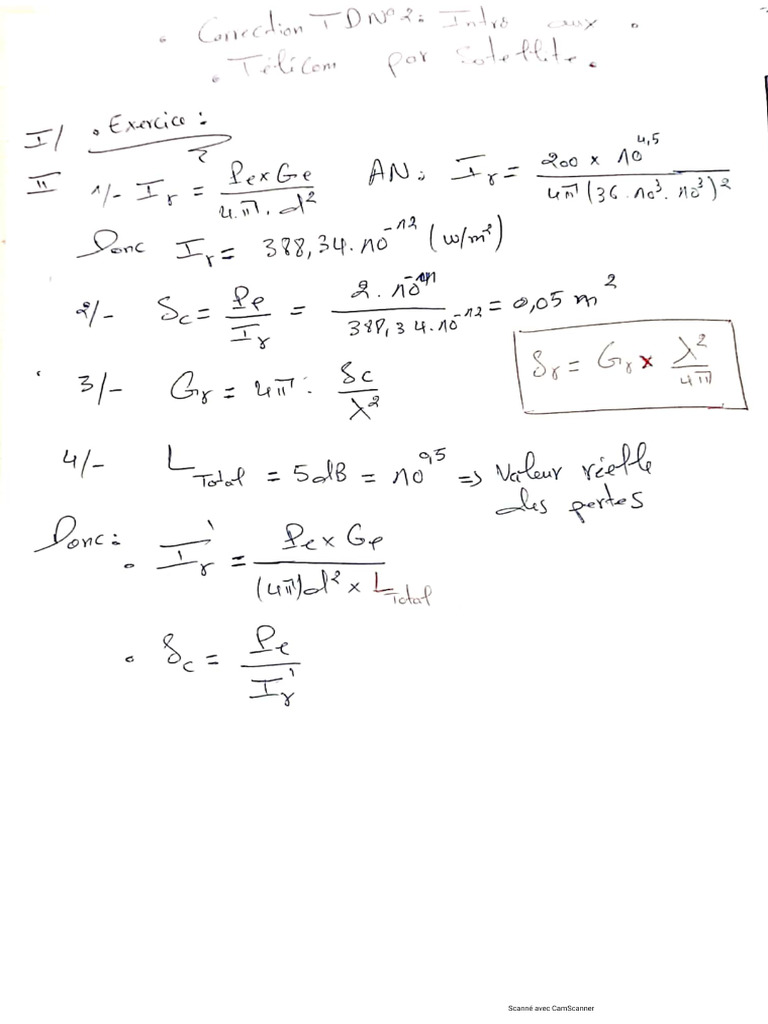 • Correction TD N°2: Intro aux •
• Télécom par Satellite.
I/ • Exercice:
II 1/- Ir = Pe x Ge / 4.π.d² AN: Ir = 200 x 10^4,5 / 4π(36.10³.10³)²
Donc Ir = 388,34.10^-12 (w/m²)
2/- Sc = Pe / Ir = 2.10^-11 / 388,34.10^-12 = 0,05 m²
Sr = Gr x λ² / 4π
3/- Gr = 4π . Sc / λ²
4/- L Total = 5dB = 10^0,5 => Valeur réelle
des pertes
Donc: • Ir' = Pe x Ge / (4π)d² x L Total
• Sc = Pe / Ir'
Scanné avec CamScanner